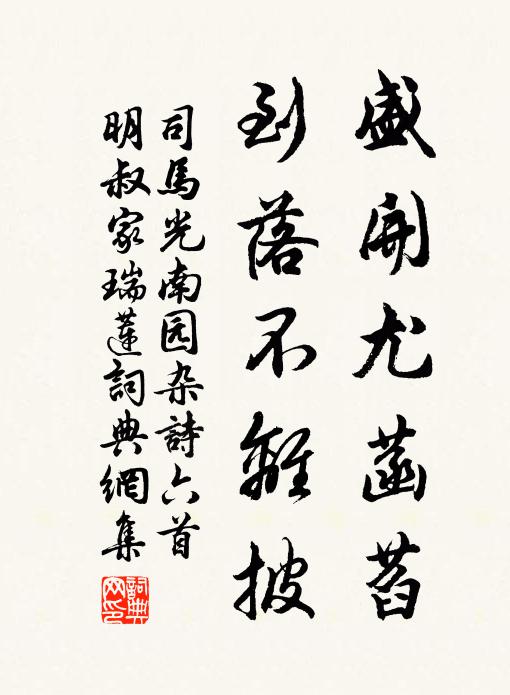 盛開尤菡萏
到落不離披
司馬光南园杂詩六首
明叔家瑞蓮詞典網集
詞典
网印